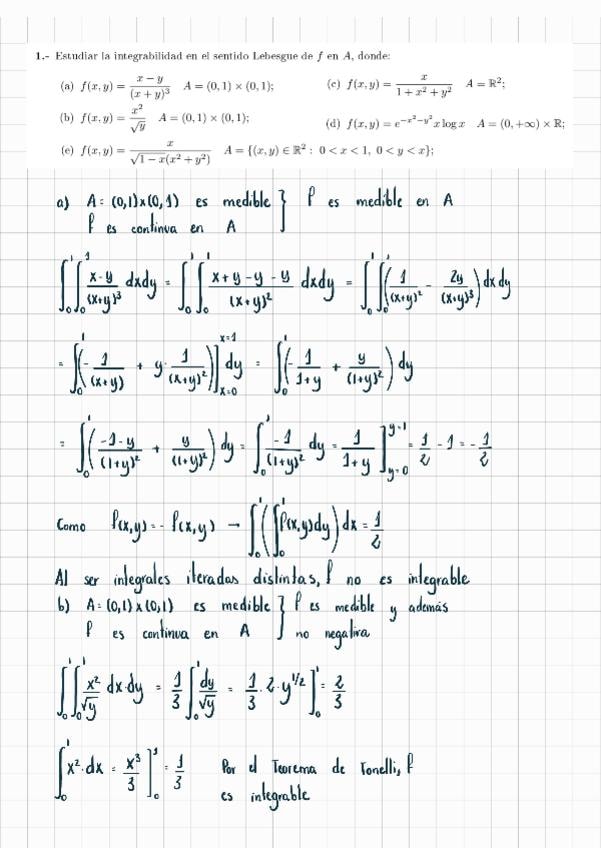 1.- Estudiar la integrabilidad en el sentido Lebesgue de f en A, donde:
(a) f(x, y) = (x − y)/(x + y)³   A = (0, 1) × (0, 1);   (c) f(x, y) = x/(1 + x² + y²)   A = ℝ²;
(b) f(x, y) = x²/√y   A = (0, 1) × (0, 1);   (d) f(x, y) = e^(−x²−y²) x log x   A = (0, +∞) × ℝ;
(e) f(x, y) = x/(√(1 − x)(x² + y²))   A = {(x, y) ∈ ℝ² : 0 < x < 1, 0 < y < x};
a) A = (0,1)x(0,1) es medible } f es medible en A
f es continua en A
∫₀¹∫₀¹ (x-y)/(x+y)³ dxdy = ∫₀¹∫₀¹ (x+y-y-y)/(x+y)² dxdy = ∫₀¹∫₀¹ (1/(x+y)² - 2y/(x+y)³) dxdy
= ∫₀¹ (-1/(x+y) + y·1/(x+y)²)]ₓ₌₀ˣ⁼¹ dy = ∫₀¹ (-1/(1+y) + y/(1+y)²) dy
= ∫₀¹ ((-1-y)/(1+y)² + y/(1+y)²) dy = ∫₀¹ -1/(1+y)² dy = 1/(1+y) ]_{y=0}^{y=1} = 1/2 - 1 = -1/2
Como f(x,y) = - f(x,y) → ∫₀¹ (∫₀¹ f(x,y)dy) dx = 1/2
Al ser integrales iteradas distintas, f no es integrable
b) A = (0,1)x(0,1) es medible } f es medible y además
f es continua en A } no negativa
∫₀¹∫₀¹ x²/√y dx·dy = 1/3 ∫₀¹ dy/√y = 1/3 · 2 · y^(1/2) ]₀¹ = 2/3
∫₀¹ x²·dx = x³/3 ]₀¹ = 1/3   Por el Teorema de Tonelli, f
es integrable